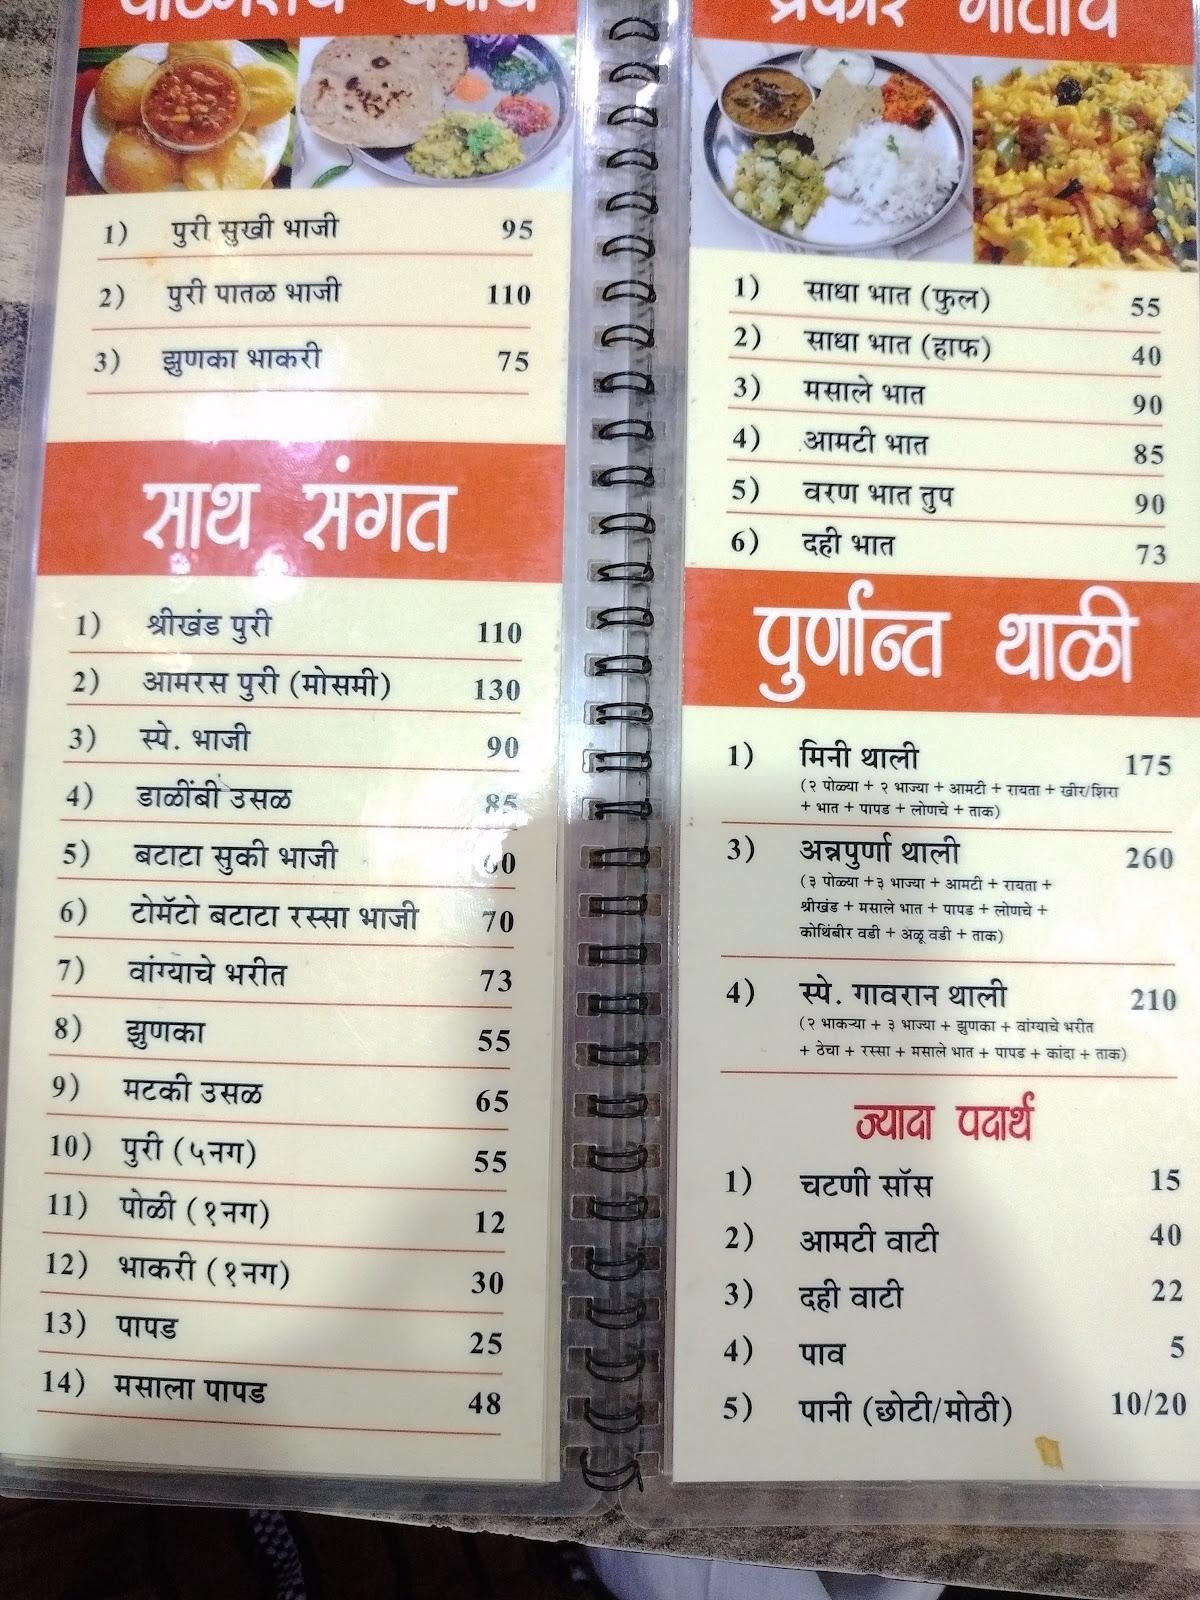 1) पुरी सुखी भाजी 95
2) पुरी पातळ भाजी 110
3) झुणका भाकरी 75
साथ संगत
1) श्रीखंड पुरी 110
2) आमरस पुरी (मोसमी) 130
3) स्पे. भाजी 90
4) डाळींबी उसळ 85
5) बटाटा सुकी भाजी
6) टोमॅटो बटाटा रस्सा भाजी 70
7) वांग्याचे भरीत 73
8) झुणका 55
9) मटकी उसळ 65
10) पुरी (५नग) 55
11) पोळी (१नग) 12
12) भाकरी (१नग) 30
13) पापड 25
14) मसाला पापड 48
1) साधा भात (फुल) 55
2) साधा भात (हाफ) 40
3) मसाले भात 90
4) आमटी भात 85
5) वरण भात तुप 90
6) दही भात 73
पुर्णान्त थाळी
1) मिनी थाली 175
(२ पोळ्या + २ भाज्या + आमटी + रायता + खीर/शिरा
+ भात + पापड + लोणचे + ताक)
3) अन्नपुर्णा थाली 260
(३ पोळ्या +३ भाज्या + आमटी + रायता +
श्रीखंड + मसाले भात + पापड + लोणचे +
कोथिंबीर वडी + अळू वडी + ताक)
4) स्पे. गावरान थाली 210
(२ भाकऱ्या + ३ भाज्या + झुणका + वांग्याचे भरीत
+ ठेचा + रस्सा + मसाले भात + पापड + कांदा + ताक)
ज्यादा पदार्थ
1) चटणी सॉस 15
2) आमटी वाटी 40
3) दही वाटी 22
4) पाव 5
5) पानी (छोटी/मोठी) 10/20